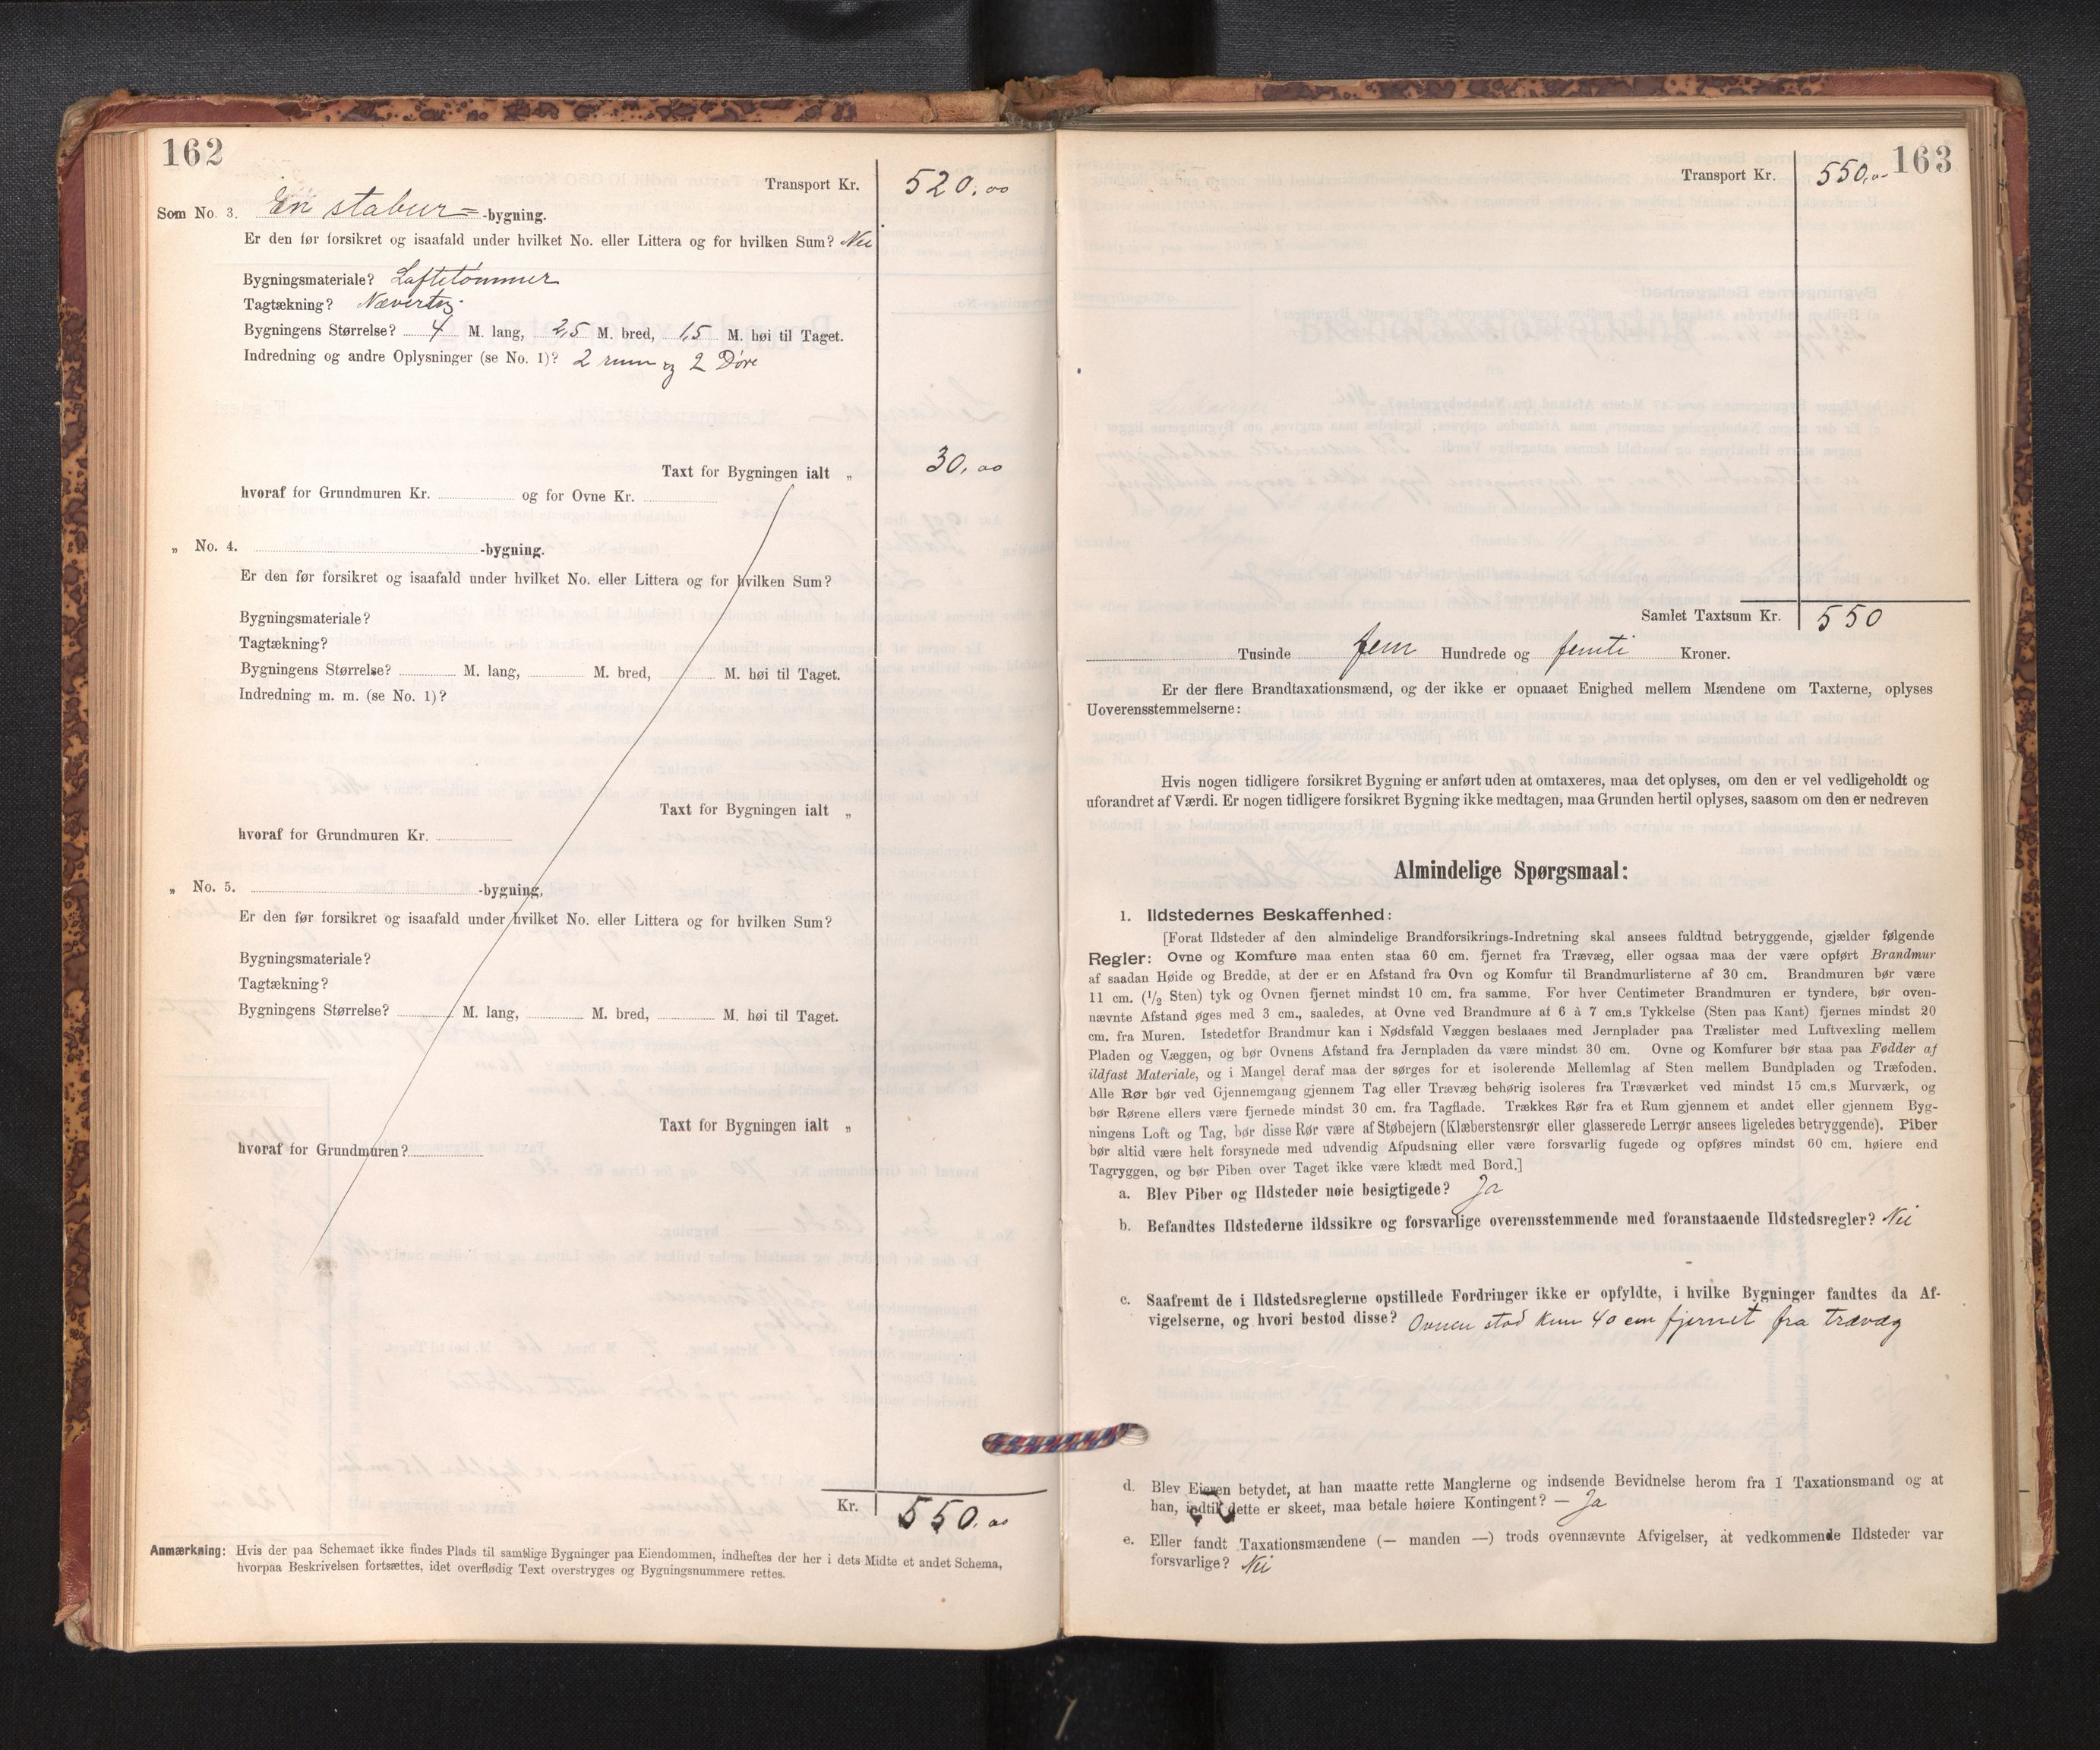 162
Transport Kr. 520,00
Som No. 3. En stabur= -bygning.
Er den før forsikret og isaafald under hvilket No. eller Littera og for hvilken Sum? Nei
Bygningsmateriale? Laftetømmer
Tagtækning? Nævertag
Bygningens Størrelse? 4 M. lang, 2,5 M. bred, 1,5 M. høi til Taget.
Indredning og andre Oplysninger (se No. 1)? 2 rum og 2 Døre
Taxt for Bygningen ialt „ 30,00
hvoraf for Grundmuren Kr. og for Ovne Kr.
„ No. 4. -bygning.
Er den før forsikret og isaafald under hvilket No. eller Littera og for hvilken Sum?
Bygningsmateriale?
Tagtækning?
Bygningens Størrelse? M. lang, M. bred, M. høi til Taget.
Indredning m. m. (se No. 1)?
Taxt for Bygningen ialt „
hvoraf for Grundmuren Kr.
„ No. 5. -bygning,
Er den før forsikret og isaafald under hvilket No. eller Littera og for hvilken Sum?
Bygningsmateriale?
Tagtækning?
Bygningens Størrelse? M. lang, M. bred, M. høi til Taget.
Taxt for Bygningen ialt „
hvoraf for Grundmuren?
Kr. 550,00
Anmærkning: Hvis der paa Schemaet ikke findes Plads til samtlige Bygninger paa Eiendommen, indheftes der her i dets Midte et andet Schema,
hvorpaa Beskrivelsen fortsættes, idet overflødig Text overstryges og Bygningsnummere rettes.
163
Transport Kr. 550,00
Samlet Taxtsum Kr. 550
Tusinde fem Hundrede og femti Kroner.
Er der flere Brandtaxationsmænd, og der ikke er opnaaet Enighed mellem Mændene om Taxterne, oplyses
Uoverensstemmelserne:
Hvis nogen tidligere forsikret Bygning er anført uden at omtaxeres, maa det oplyses, om den er vel vedligeholdt og
uforandret af Værdi. Er nogen tidligere forsikret Bygning ikke medtagen, maa Grunden hertil oplyses, saasom om den er nedreven
Almindelige Spørgsmaal:
1. Ildstedernes Beskaffenhed:
[Forat Ildsteder af den almindelige Brandforsikrings-Indretning skal ansees fuldtud betryggende, gjælder følgende
Regler: Ovne og Komfure maa enten staa 60 cm. fjernet fra Trævæg, eller ogsaa maa der være opført Brandmur
af saadan Høide og Bredde, at der er en Afstand fra Ovn og Komfur til Brandmurlisterne af 30 cm. Brandmuren bør være
11 cm. (1/2 Sten) tyk og Ovnen fjernet mindst 10 cm. fra samme. For hver Centimeter Brandmuren er tyndere, bør oven-
nævnte Afstand øges med 3 cm., saaledes, at Ovne ved Brandmure af 6 à 7 cm.s Tykkelse (Sten paa Kant) fjernes mindst 20
cm. fra Muren. Istedetfor Brandmur kan i Nødsfald Væggen beslaaes med Jernplader paa Trælister med Luftvexling mellem
Pladen og Væggen, og bør Ovnens Afstand fra Jernpladen da være mindst 30 cm. Ovne og Komfurer bør staa paa Fødder af
ildfast Materiale, og i Mangel deraf maa der sørges for et isolerende Mellemlag af Sten mellem Bundpladen og Træfoden.
Alle Rør bør ved Gjennemgang gjennem Tag eller Trævæg behørig isoleres fra Træværket ved mindst 15 cm.s Murværk, og
bør Rørene ellers være fjernede mindst 30 cm. fra Tagflade. Trækkes Rør fra et Rum gjennem et andet eller gjennem Byg-
ningens Loft og Tag, bør disse Rør være af Støbejern (Klæberstensrør eller glasserede Lerrør ansees ligeledes betryggende). Piber
bør altid være helt forsynede med udvendig Afpudsning eller være forsvarlig fugede og opføres mindst 60 cm. høiere end
Tagryggen, og bør Piben over Taget ikke være klædt med Bord.]
a. Blev Piber og Ildsteder nøie besigtigede? Ja
b. Befandtes Ildstederne ildssikre og forsvarlige overensstemmende med foranstaaende Ildstedsregler? Nei
c. Saafremt de i Ildstedsreglerne opstillede Fordringer ikke er opfyldte, i hvilke Bygninger fandtes da Af-
vigelserne, og hvori bestod disse? Ovnen stod kun 40 cm fjernet fra trævæg
d. Blev Eieren betydet, at han maatte rette Manglerne og indsende Bevidnelse herom fra 1 Taxationsmand og at
han, indtil dette er skeet, maa betale høiere Kontingent? — Ja
e. Eller fandt Taxationsmændene (— manden —) trods ovennævnte Afvigelser, at vedkommende Ildsteder var
forsvarlige? Nei